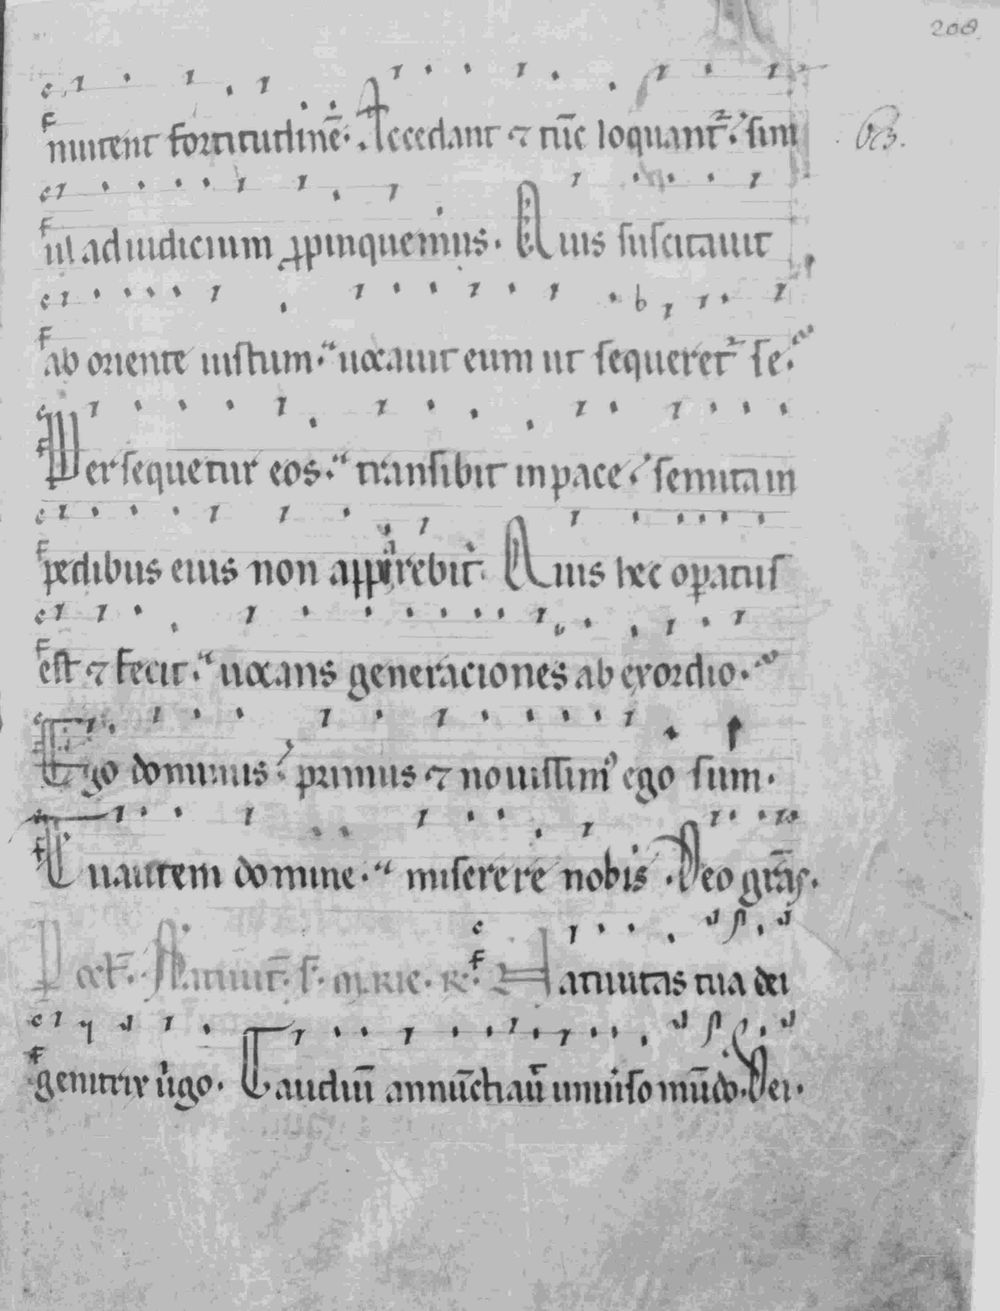 208
mutent fortitudinē. Accedant ⁊ tūc loquant᷑. sim
ul ad iudicium ꝓpinquemus. Quis suscitauit
ab oriente iustum. uocauit eum ut sequeret᷑ se.
Persequetur eos. transibit in pace. semita in
pedibus eius non apparebit. Quis hec oꝑatus
est ⁊ fecit. uocans generaciones ab exordio.
Ego dominus. primus ⁊ nouissim᷒ ego sum.
Tu autem domine. miserere nobis. Deo grās.
Natiuitas tua dei
genitrix uirgo. Gaudiū annūciauit uniuerso mūdo. Dei.